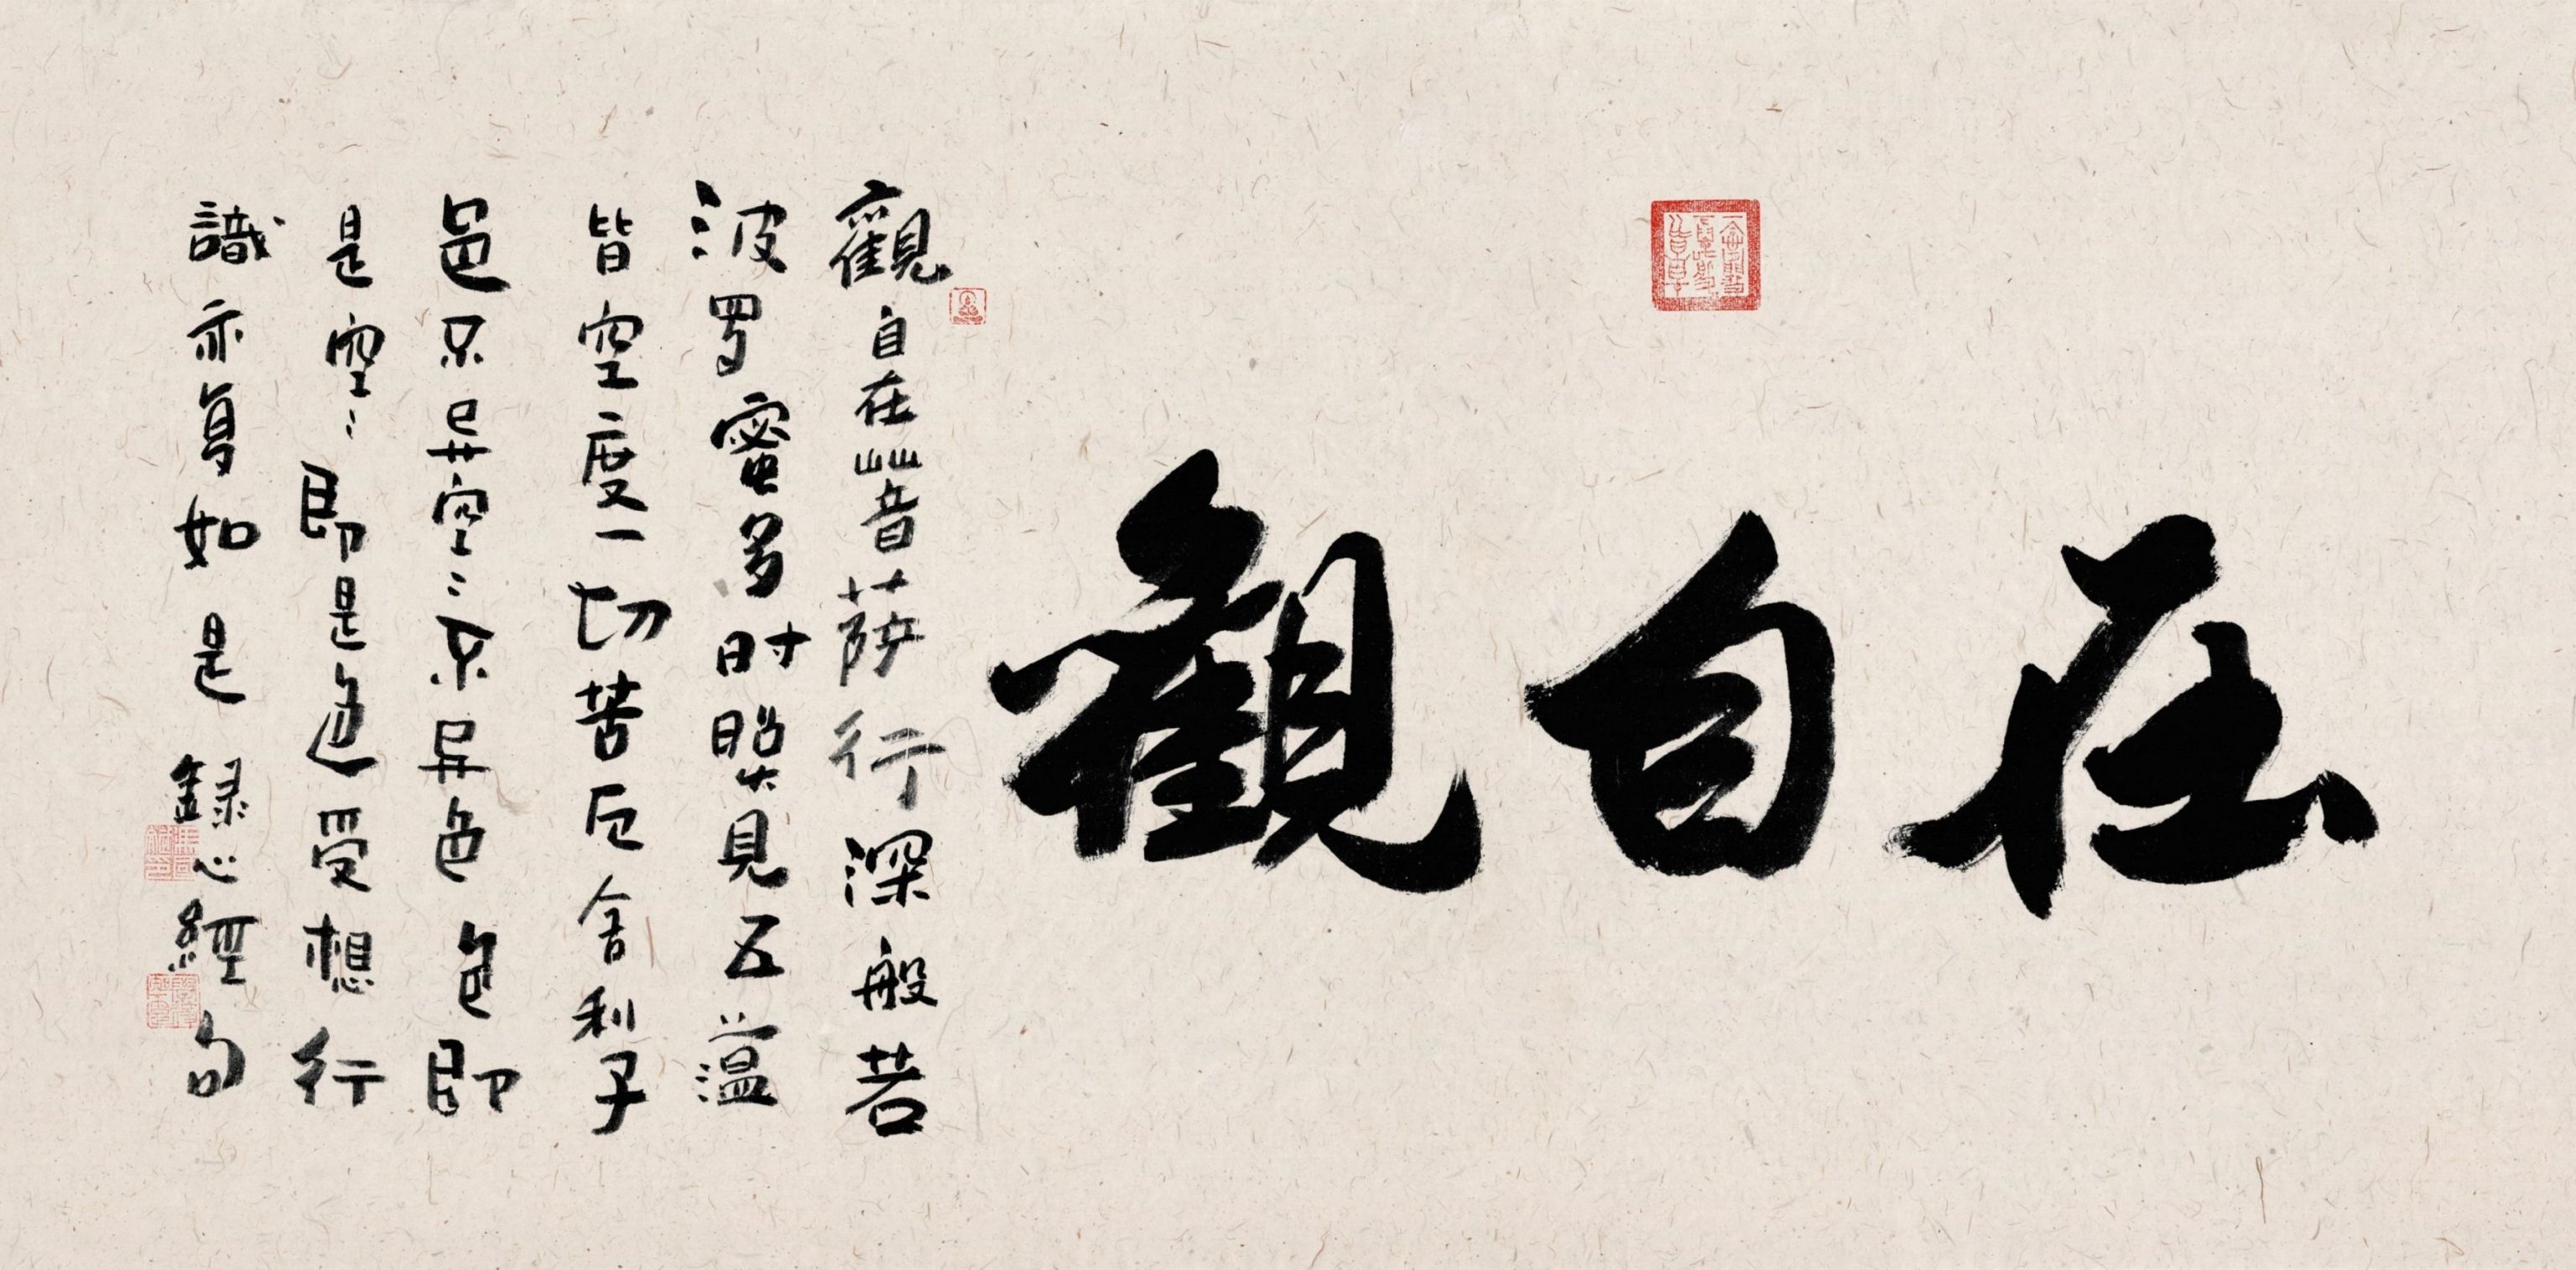 觀自在
觀自在菩薩行深般若
波罗蜜多时照見五蘊
皆空度一切苦厄舍利子
色不异空〻不异色色即
是空〻即是色受想行
識亦复如是 録心經句